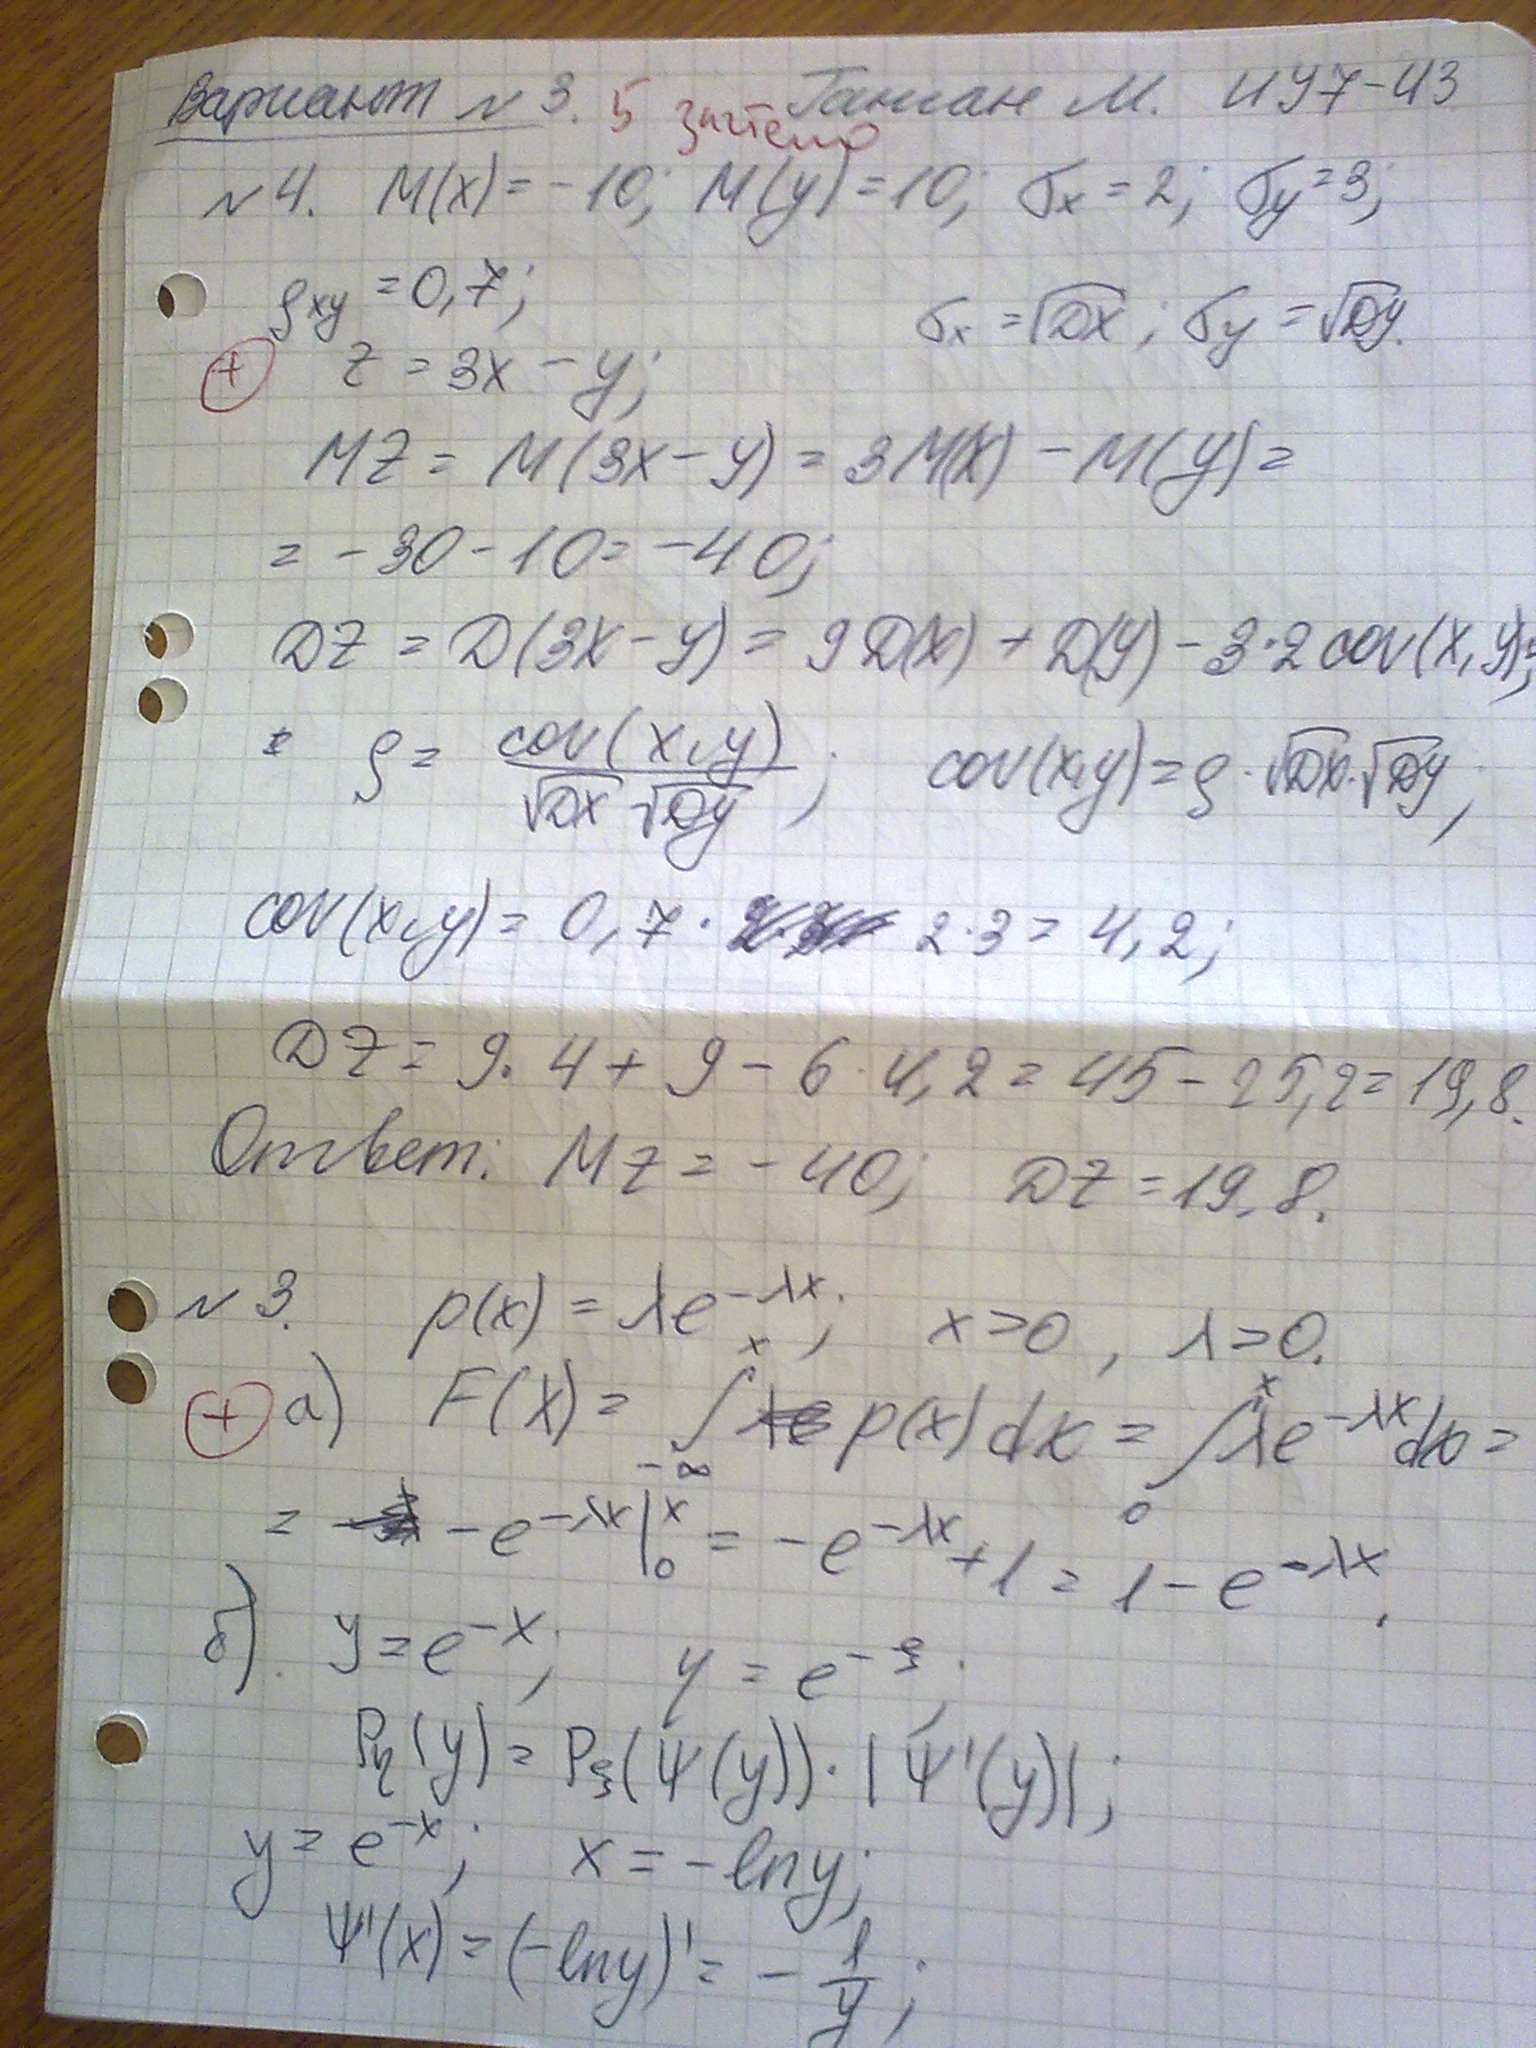 Вариант №3. 5 зачтено М. ИУ7-43
№4. M(x) = -10; M(y) = 10; σx = 2; σy = 3;
ρxy = 0,7; σx = √Dx; σy = √Dy.
+ z = 3x - y;
MZ = M(3x - y) = 3M(x) - M(y) =
= -30 - 10 = -40;
DZ = D(3x - y) = 9D(x) + D(y) - 3·2cov(x,y);
ρ = cov(x,y) / √Dx √Dy; cov(x,y) = ρ·√Dx·√Dy;
cov(x,y) = 0,7· 2·3 = 4,2;
DZ = 9·4 + 9 - 6·4,2 = 45 - 25,2 = 19,8.
Ответ: MZ = -40; DZ = 19,8.
№3. p(x) = λe^{-λx}; x>0, λ>0.
+ а) F(x) = ∫_{-∞}^{x} p(x)dx = ∫_0^x λe^{-λx}dx =
= -e^{-λx}|_0^x = -e^{-λx} + 1 = 1 - e^{-λx}.
б). y = e^{-x}; η = e^{-ξ};
Pη(y) = Pξ(Ψ(y))·|Ψ'(y)|;
y = e^{-x}; x = -lny;
Ψ'(x) = (-lny)' = -1/y;